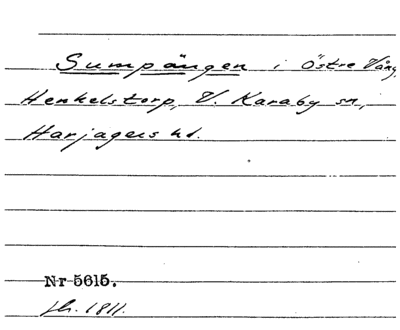 Sumpängen i Östre Vång,
Henkelstorp, V. Karaby sn,
Harjagers hd.
Nr 5615.
1811.